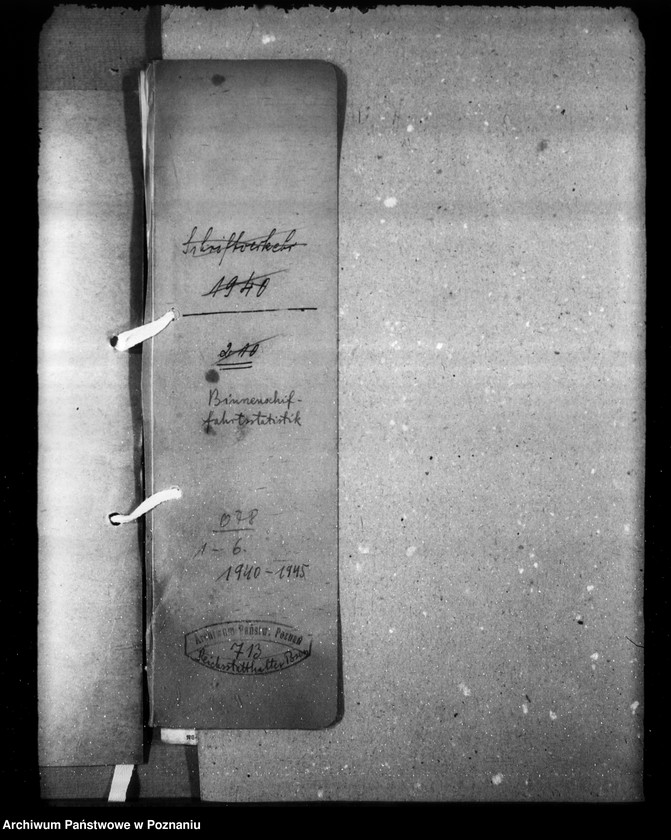 Schriftverkehr
1940
210
Binnenschif-
fahrtsstatistik
1-6.
1940-1945
Archiwum Państw. Poznań
713
Reichsstatthalter
Archiwum Państwowe w Poznaniu